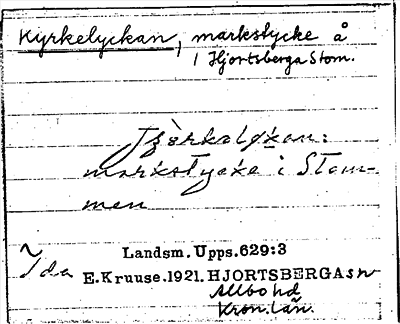 Kyrkelyckan, markstycke å
1 Hjortsberga Stom.
markstycke i Stom-
men
Landsm. Upps. 629:3
Ida
E. Kruuse. 1921. HJORTSBERGA sn
Allbo hd
Kron. län.